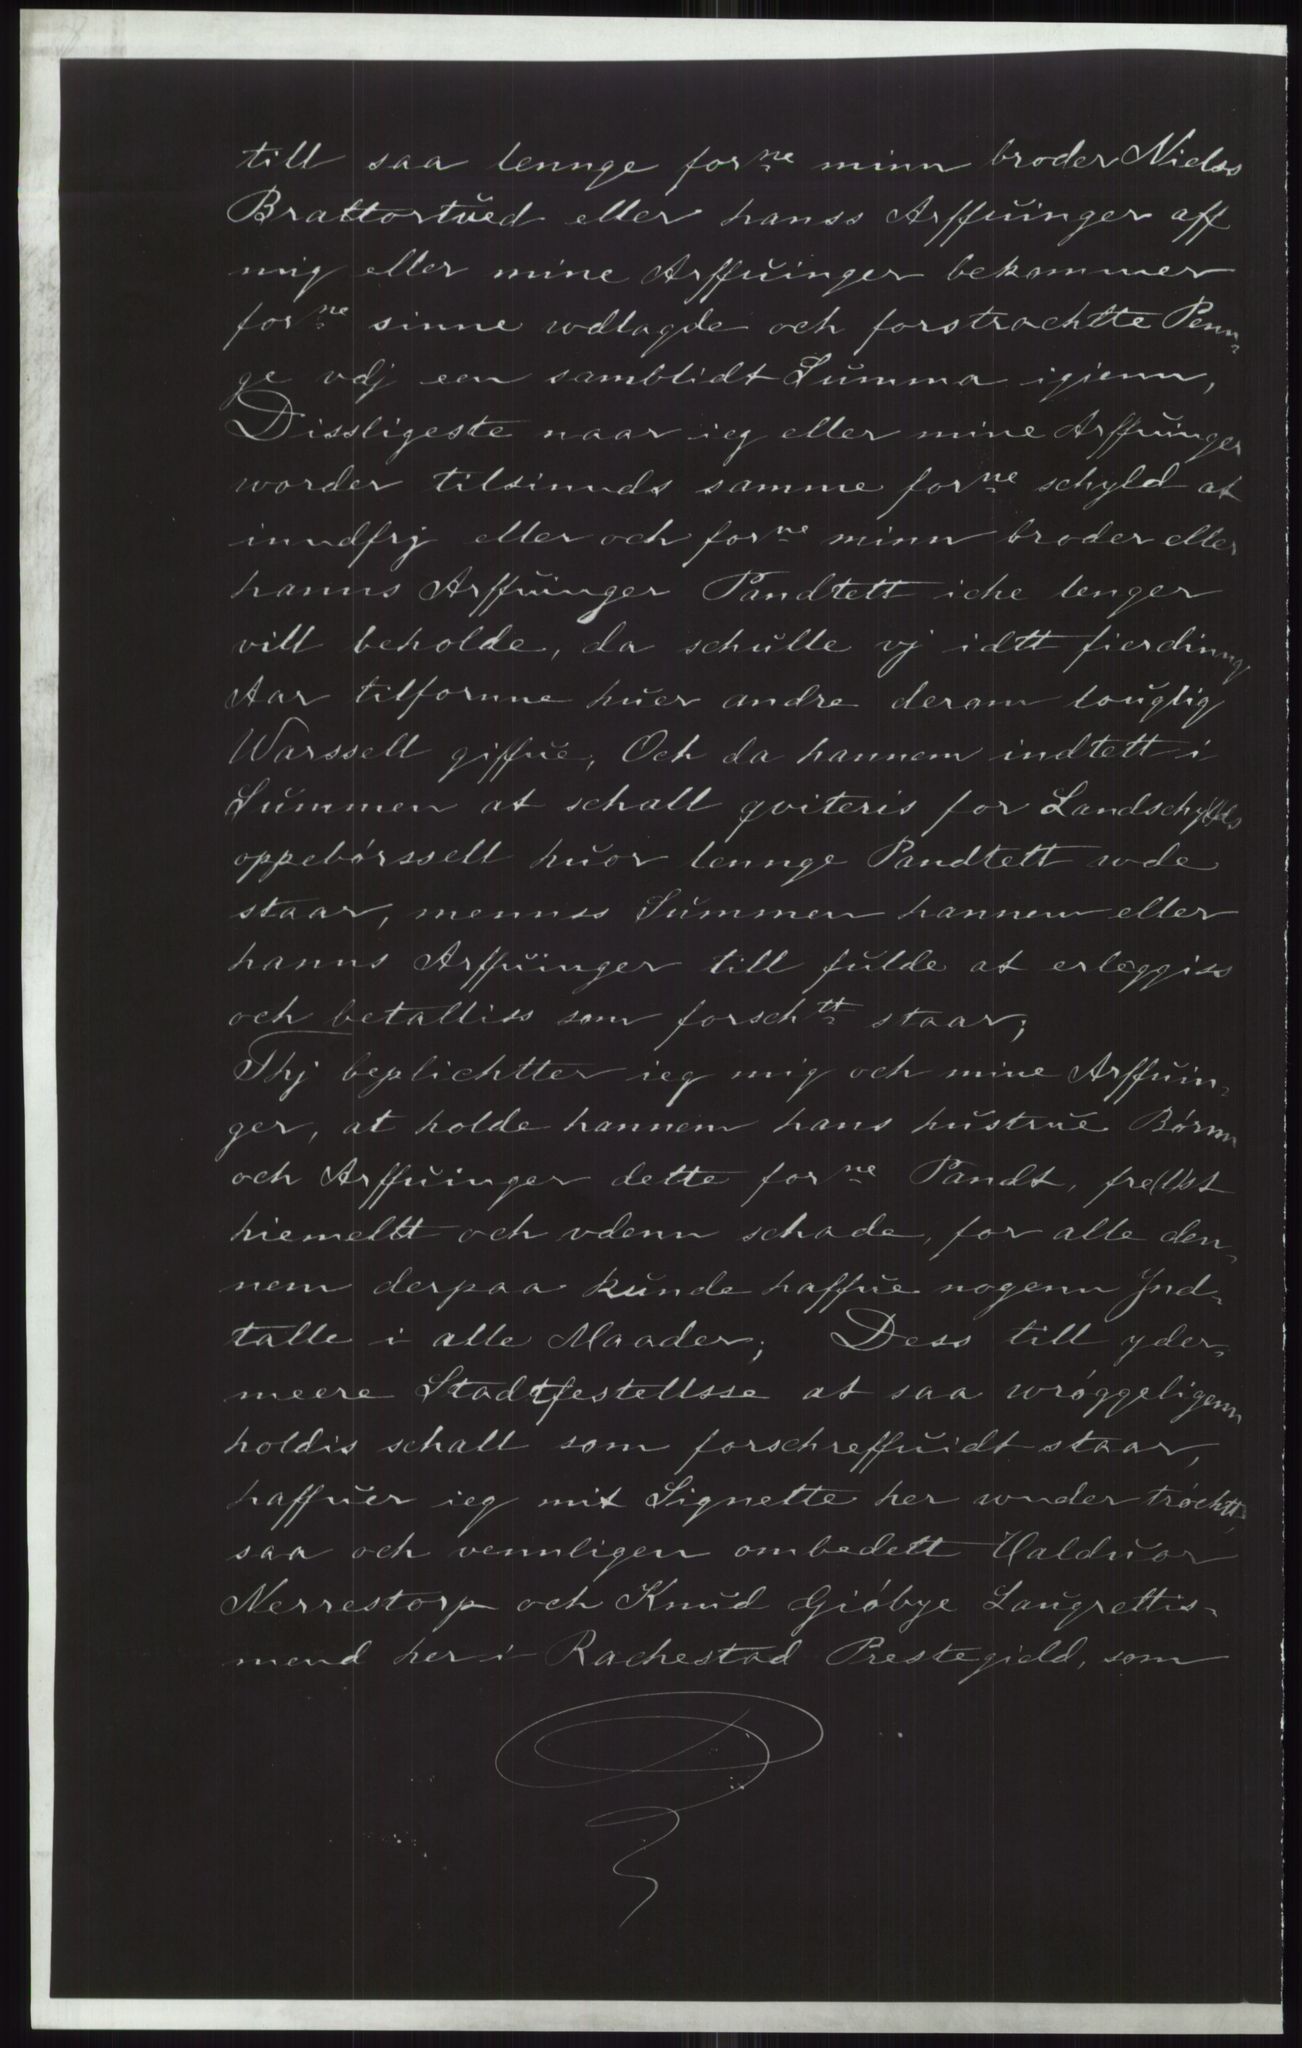 till saa lennge forne minn broder Nielss
Brattortued eller hanss Arffuinger aff
mig eller mine Arffuinger bekommer
forne sinne wdlagde och forstrachtte Penn-
ge vdj een samblidt Summa igienn,
Dissligeste naar ieg eller mine Arffuinger
worder tilsinnds samme forne schyld at
inndfrj eller och forne minn broder eller
hanns Arffuinger Pandtett iche lenger
vill beholde, da schulle vj idtt fierdinng
Aar tilfornne huer andre derom louglig
Warssell giffue, Och da hannem indtett i
Summen at schall qviteris for Landschylds
oppebørssell huor lennge Pandtett wde
staar, mennss Summen hannem eller
hanns Arffuinger till fulde at erleggiss
och betalliss som forschtt staar;
Thj beplichtter ieg mig och mine Arffuin-
ger, at holde hannem hans hustrue Børnn
och Arffuinger dette forne Pandt, fre(l)st
hiemellt och vdenn schade, for alle den-
nem derpaa kunde haffue nogenn Ind-
talle i alle Maader; Dess till yder-
meere Stadtfestellsse at saa wrøggeligenn
holdis schall som forschreffuidt staar,
haffuer ieg mit Signette her wnder trøchtt,
saa och vennligen ombedett Halduor
Nerrestorp och Knud Giøbye Laugrettis-
mend her i Rachestad Prestegield, som